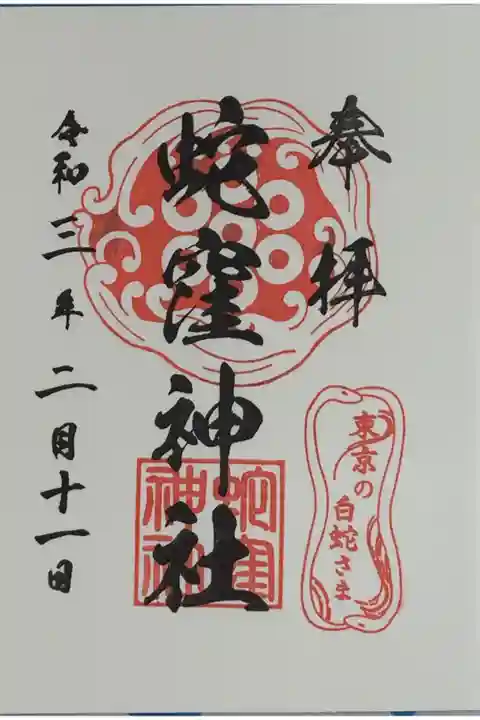 奉拝
東京の
白蛇さま
蛇窪神社
蛇窪
神社
令和三年二月十一日